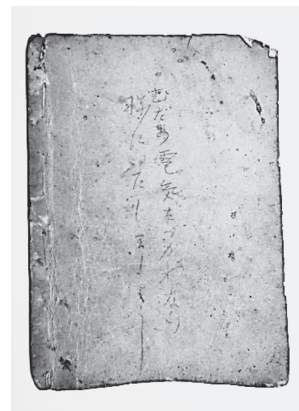 むだな電気をつかわない
様にいたしましょう